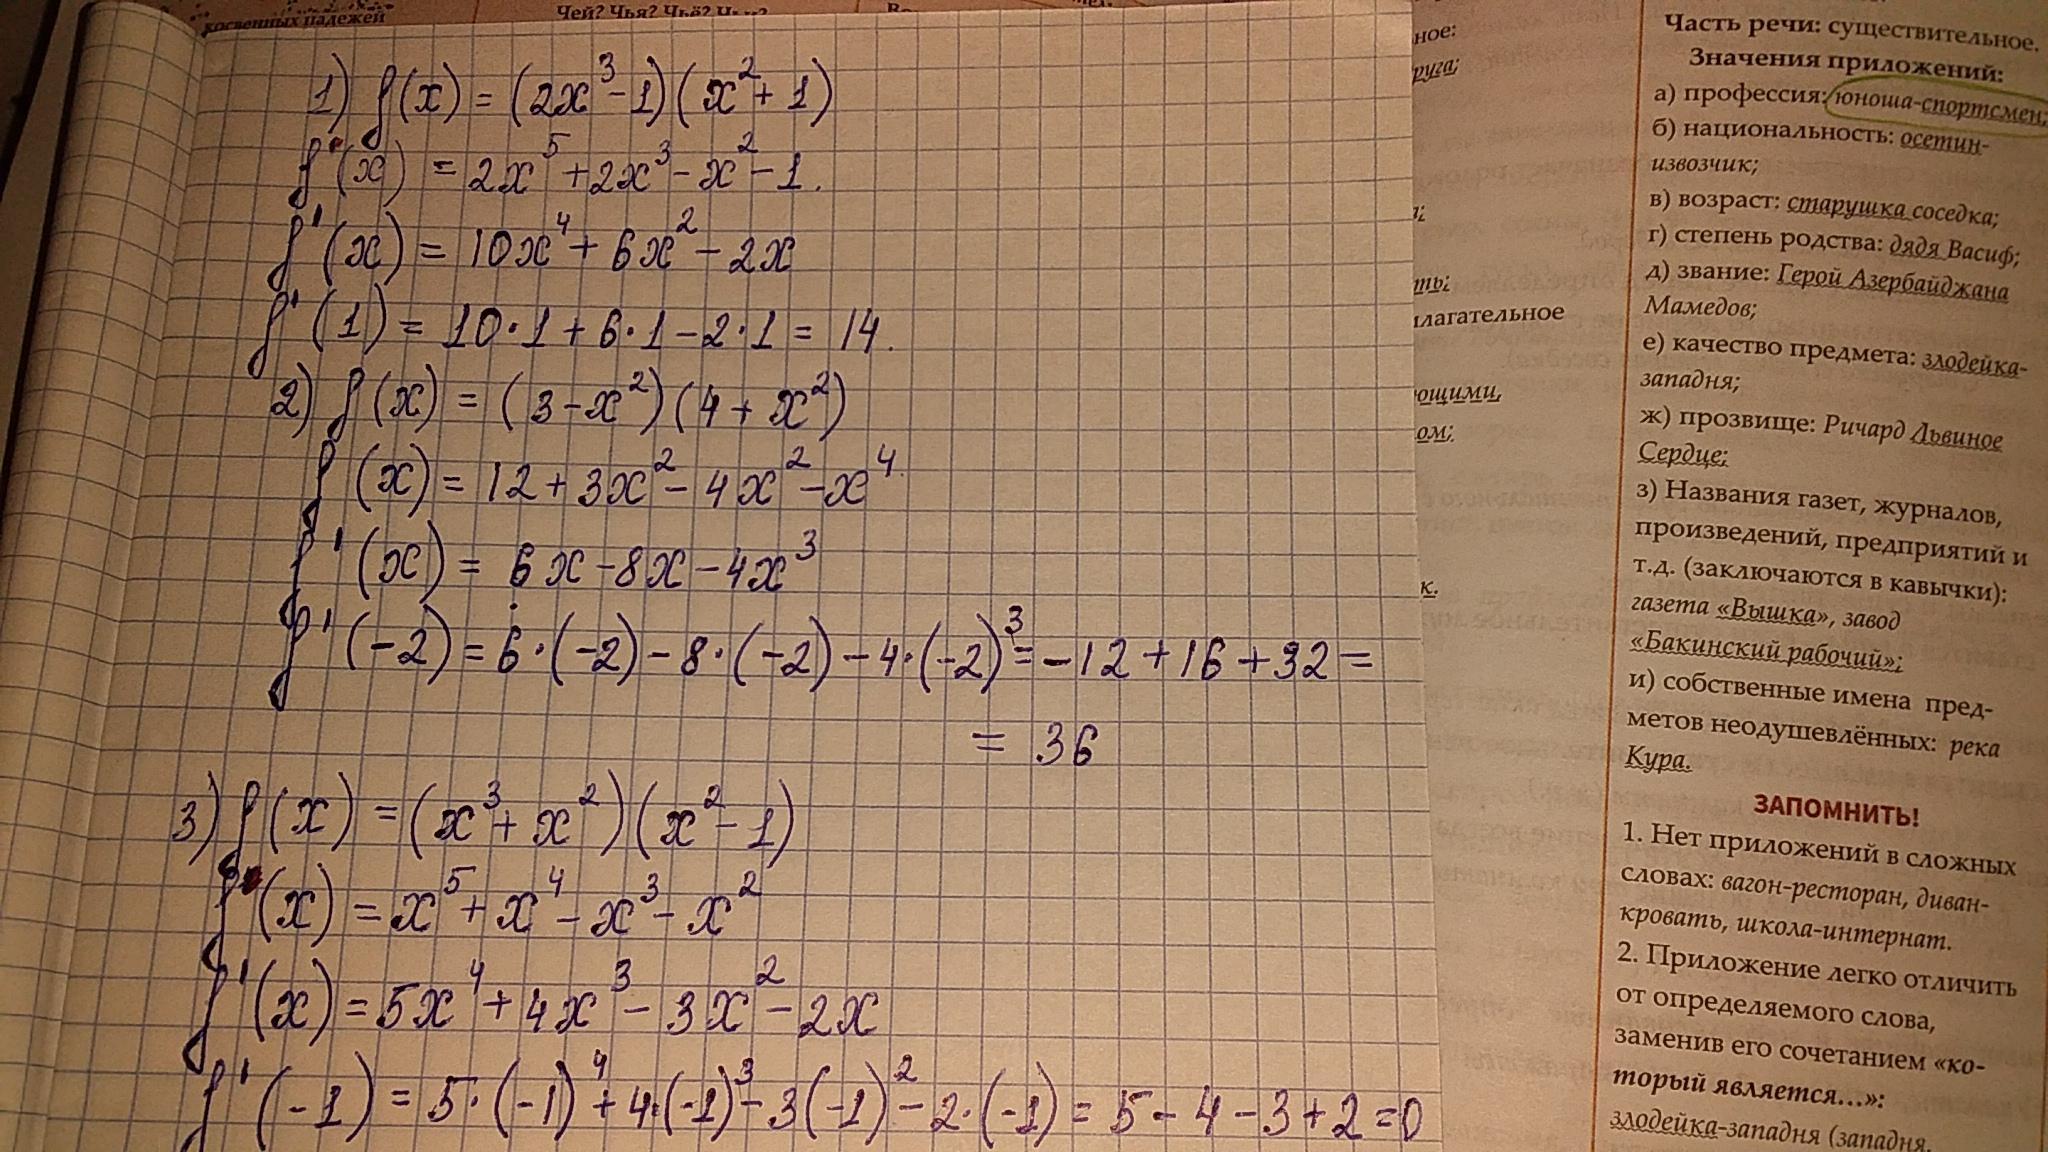 косвенных падежей
Чей? Чья? Чьё? Чьи?
1) f(x) = (2x³-1)(x²+1)
f(x) = 2x⁵+2x³-x²-1.
f'(x) = 10x⁴+6x²-2x
f'(1) = 10·1+6·1-2·1 = 14.
2) f(x) = (3-x²)(4+x²)
f(x) = 12+3x²-4x²-x⁴.
f'(x) = 6x-8x-4x³
f'(-2) = 6·(-2)-8·(-2)-4·(-2)³ = -12+16+32 =
= 36
3) f(x) = (x³+x²)(x²-1)
f(x) = x⁵+x⁴-x³-x²
f'(x) = 5x⁴+4x³-3x²-2x
f'(-1) = 5·(-1)⁴+4·(-1)³-3(-1)²-2·(-1) = 5-4-3+2=0
ное:
руга;
ть:
илагательное
ющими,
ом;
к.
Часть речи: существительное.
Значения приложений:
а) профессия: юноша-спортсмен;
б) национальность: осетин-
извозчик;
в) возраст: старушка соседка;
г) степень родства: дядя Васиф;
д) звание: Герой Азербайджана
Мамедов;
е) качество предмета: злодейка-
западня;
ж) прозвище: Ричард Львиное
Сердце;
з) Названия газет, журналов,
произведений, предприятий и
т.д. (заключаются в кавычки):
газета «Вышка», завод
«Бакинский рабочий»;
и) собственные имена пред-
метов неодушевлённых: река
Кура.
ЗАПОМНИТЬ!
1. Нет приложений в сложных
словах: вагон-ресторан, диван-
кровать, школа-интернат.
2. Приложение легко отличить
от определяемого слова,
заменив его сочетанием «ко-
торый является...»:
злодейка-западня (западня,